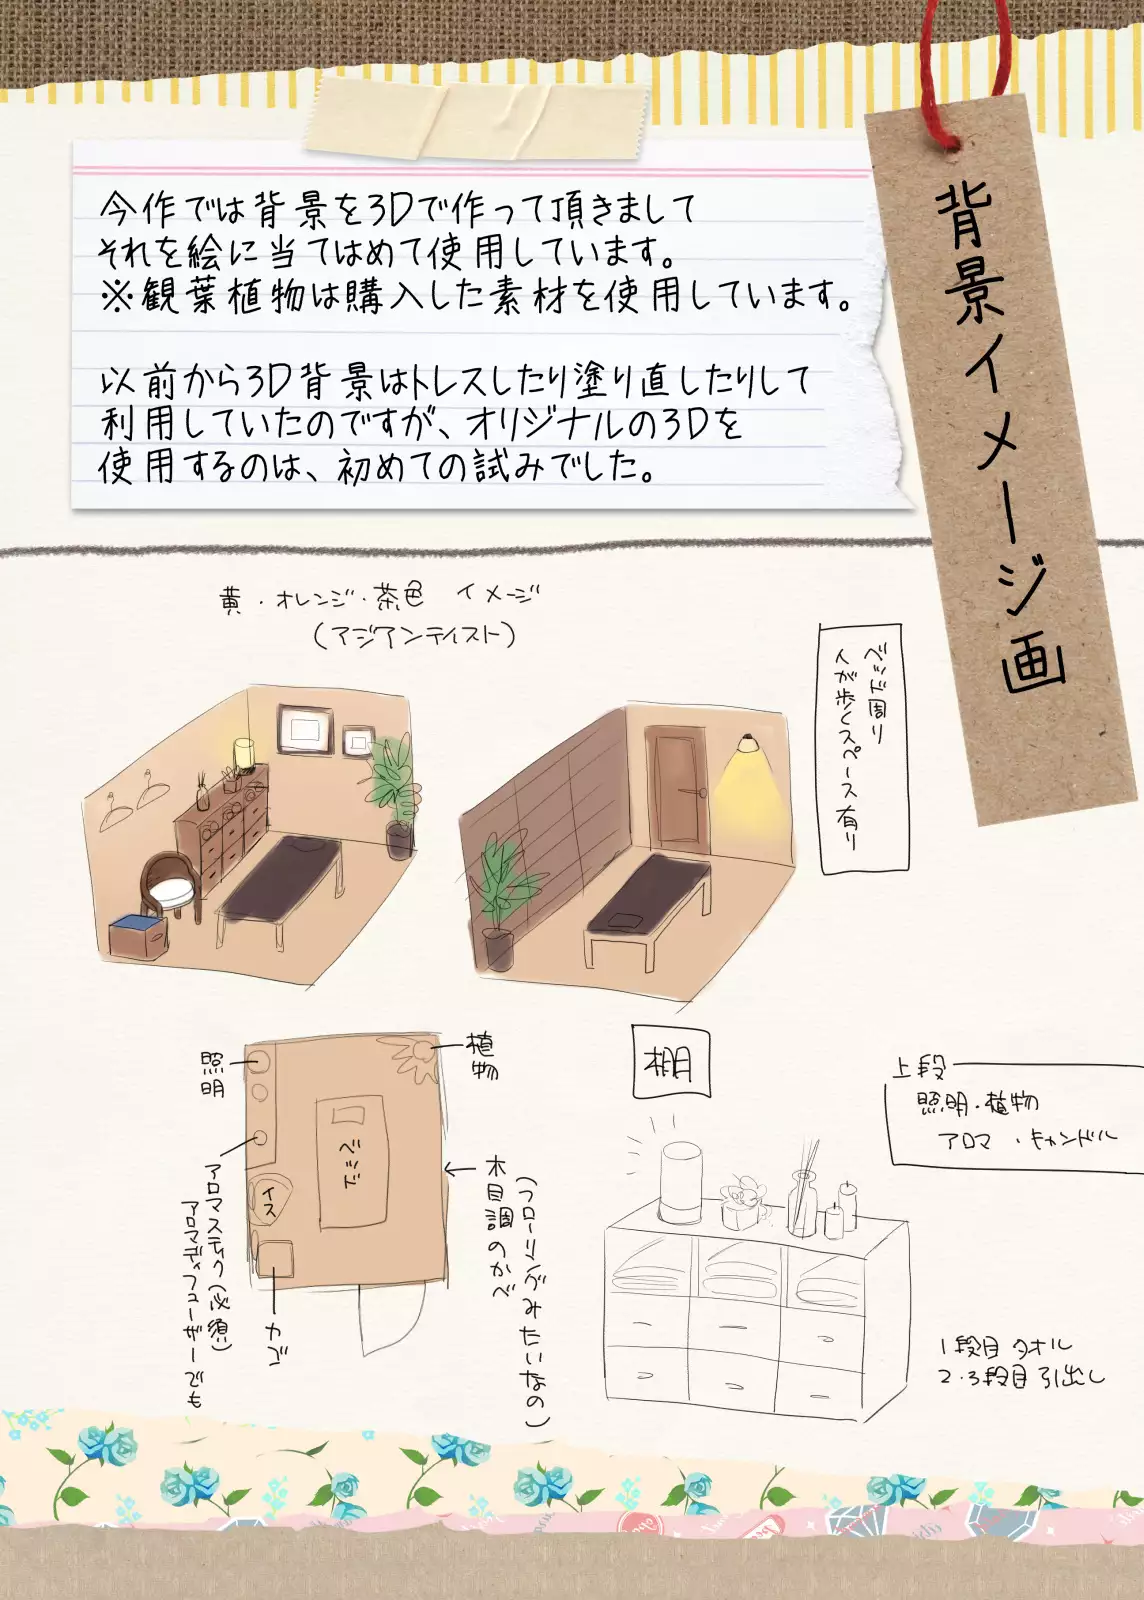 背景イメージ画
今作では背景を3Dで作って頂きまして
それを絵に当てはめて使用しています。
※観葉植物は購入した素材を使用しています。
以前から3D背景はトレスしたり塗り直したりして
利用していたのですが、オリジナルの3Dを
使用するのは、初めての試みでした。
黄・オレンジ・茶色 イメージ
(アジアンテイスト)
ベッド周り
人が歩くスペース有り
照明
植物
ベッド
イス
アロマスティク(必須)
アロマディフューザーでも
カゴ
木目調のかべ
(フローリングみたいなの)
棚
上段
照明・植物
アロマ・キャンドル
1段目 タオル
2・3段目 引出し